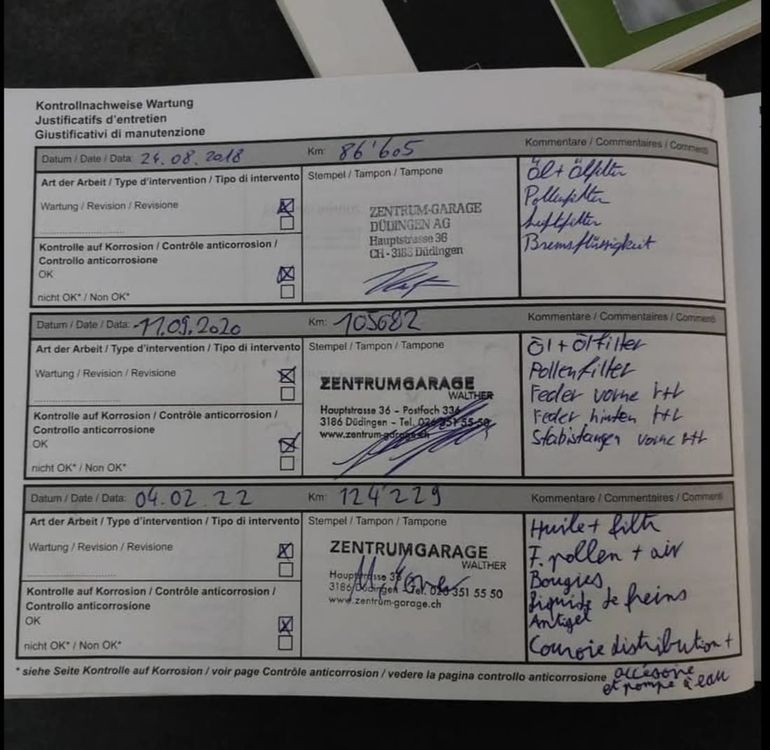 Kontrollnachweise Wartung
Justificatifs d'entretien
Giustificativi di manutenzione
Datum / Date / Data: 24.08.2018 Km: 86'605 Kommentare / Commentaires / Commenti
Art der Arbeit / Type d'intervention / Tipo di intervento
Stempel / Tampon / Tampone
Öl + Ölfilter
Pollenfilter
Luftfilter
Bremsflüssigkeit
Wartung / Revision / Revisione
ZENTRUM-GARAGE
DÜDINGEN AG
Hauptstrasse 36
CH - 3186 Düdingen
Kontrolle auf Korrosion / Contrôle anticorrosion /
Controllo anticorrosione
OK
nicht OK* / Non OK*
Datum / Date / Data: 11.09.2020 Km: 105682 Kommentare / Commentaires / Commenti
Art der Arbeit / Type d'intervention / Tipo di intervento
Stempel / Tampon / Tampone
Öl + Ölfilter
Pollenfilter
Feder vorne
Feder hinten
Stabistangen vorne
Wartung / Revision / Revisione
ZENTRUMGARAGE
WALTHER
Hauptstrasse 36 - Postfach 334
3186 Düdingen - Tel. 026 351 55 50
www.zentrum-garage.ch
Kontrolle auf Korrosion / Contrôle anticorrosion /
Controllo anticorrosione
OK
nicht OK* / Non OK*
Datum / Date / Data: 04.02.22 Km: 124'229 Kommentare / Commentaires / Commenti
Art der Arbeit / Type d'intervention / Tipo di intervento
Stempel / Tampon / Tampone
Huile + filtr
F. pollen + air
Bougies
Liquide de freins
Antigel
Courroie distribution +
accesoire
et pompe à eau
Wartung / Revision / Revisione
ZENTRUMGARAGE
WALTHER
Hauptstrasse 36
3186 Düdingen - Tel. 026 351 55 50
www.zentrum-garage.ch
Kontrolle auf Korrosion / Contrôle anticorrosion /
Controllo anticorrosione
OK
nicht OK* / Non OK*
* siehe Seite Kontrolle auf Korrosion / voir page Contrôle anticorrosion / vedere la pagina controllo anticorrosione